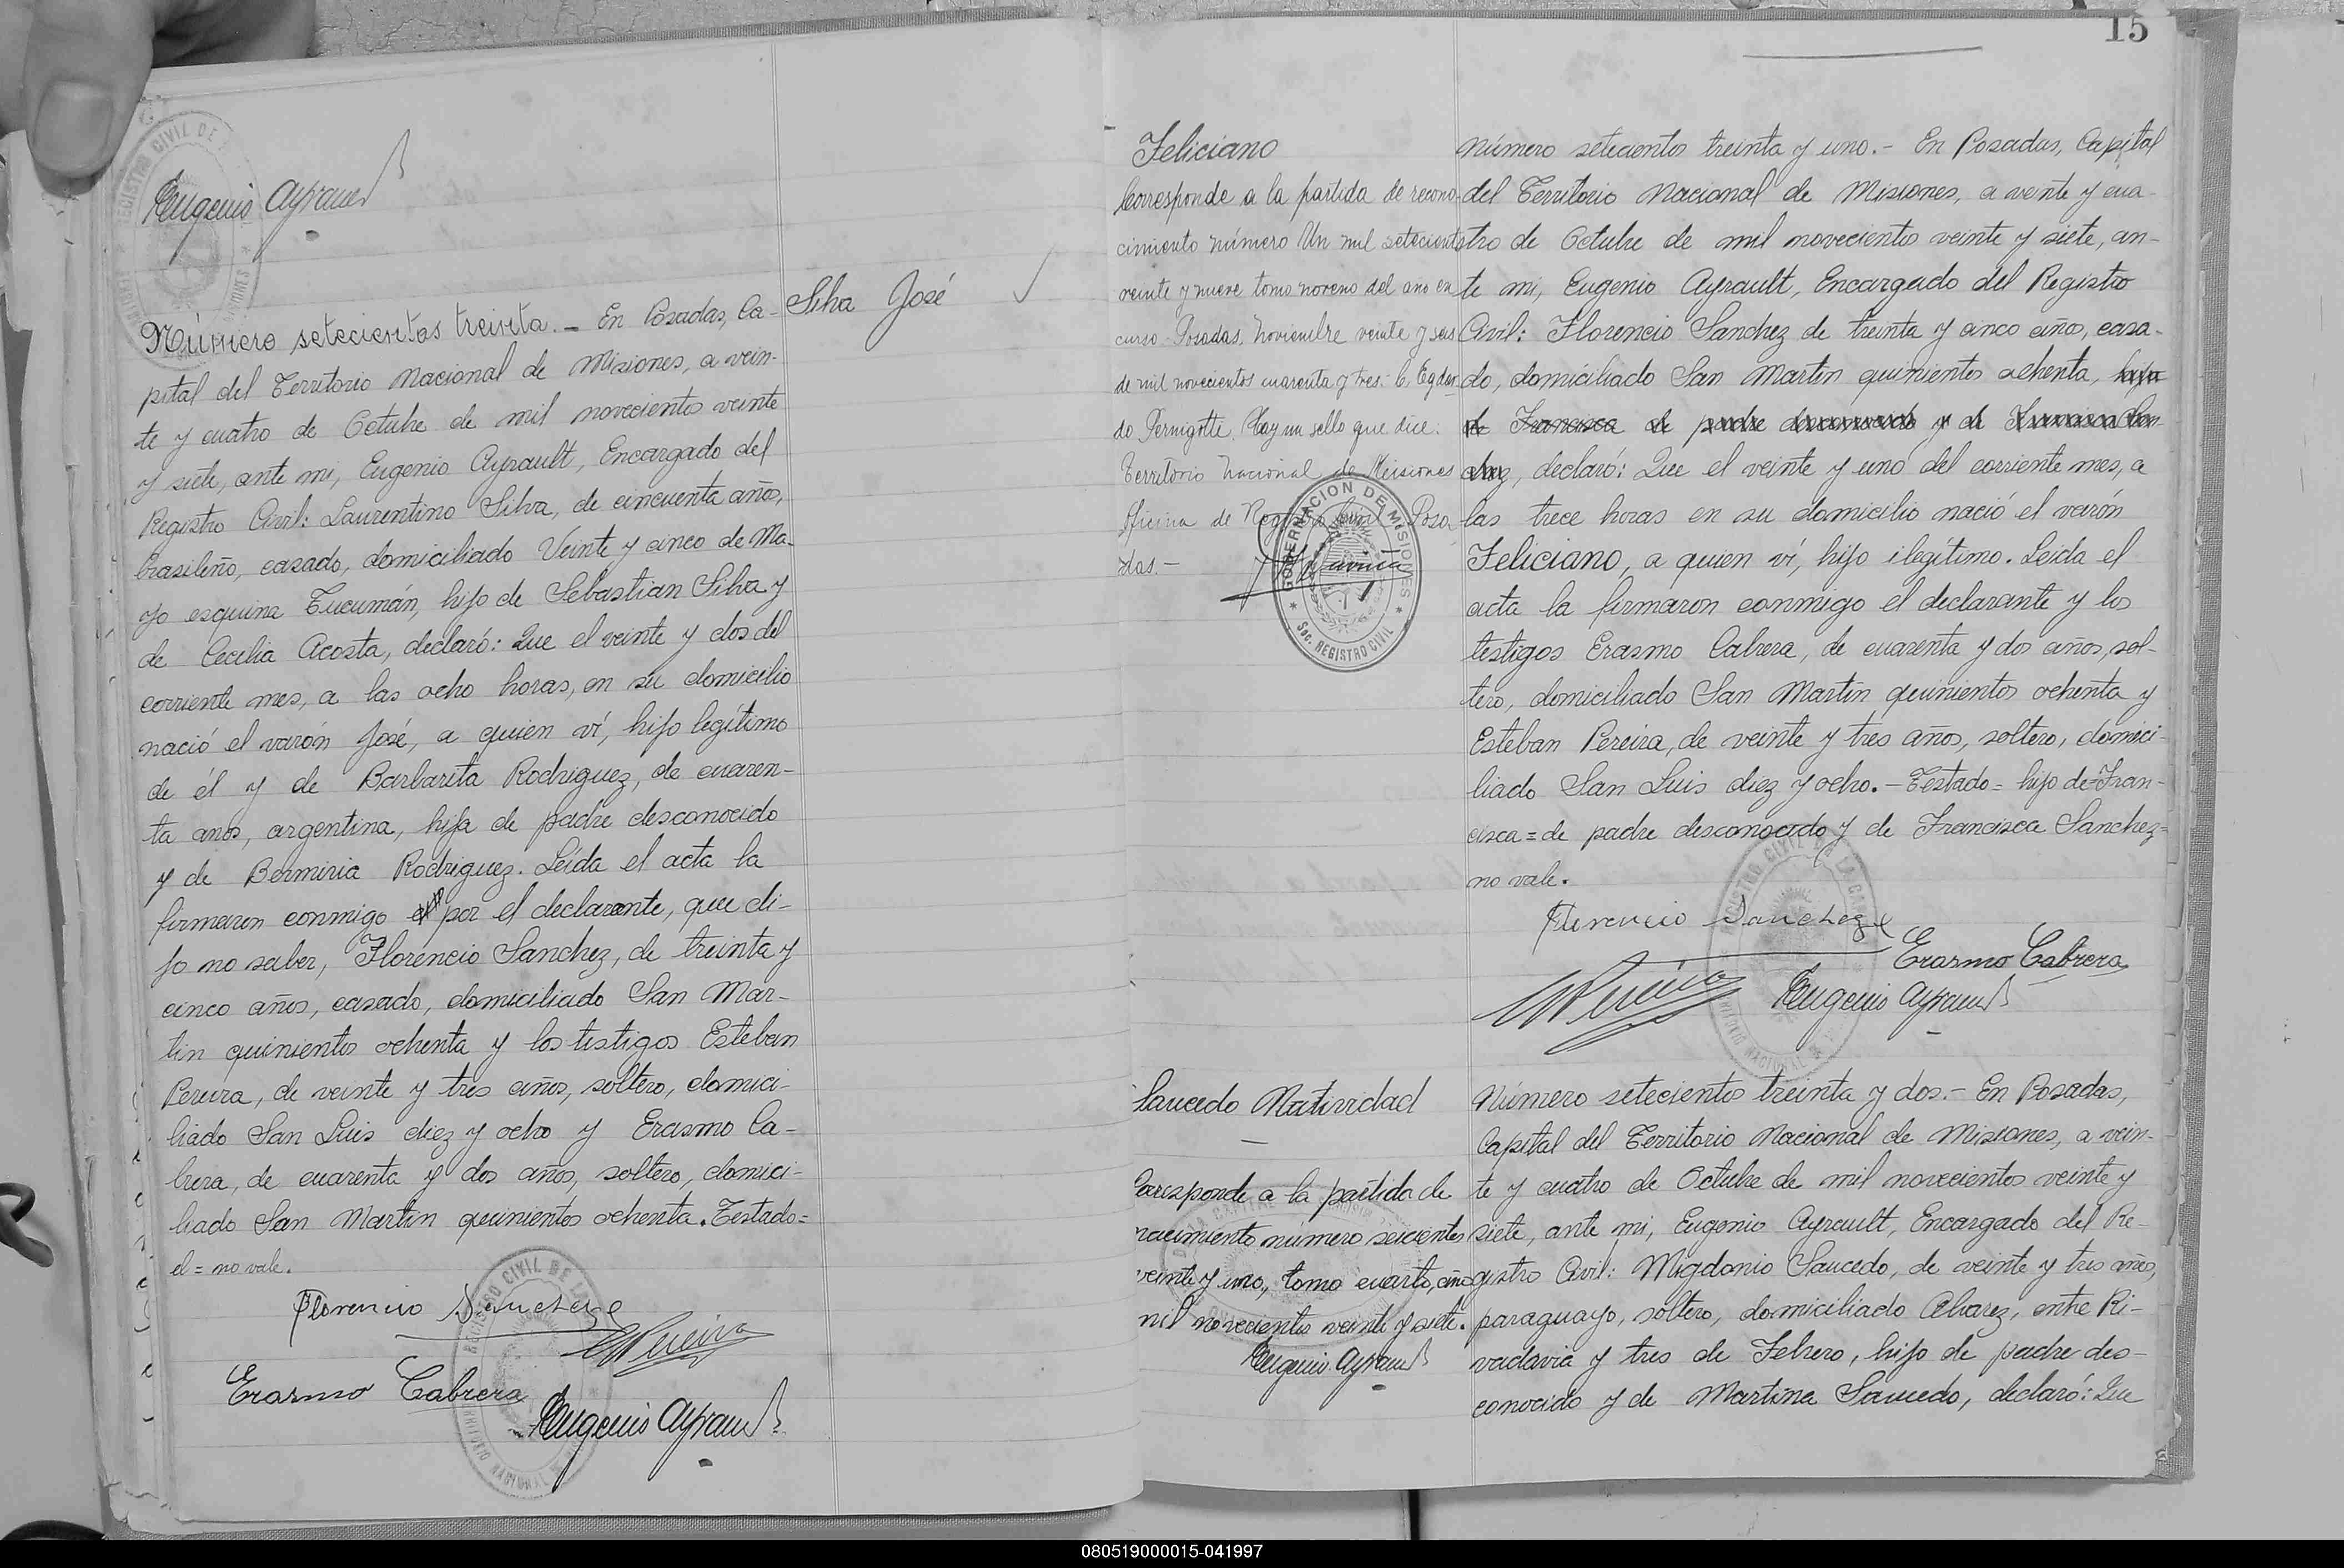 REGISTRO CIVIL DE
Eugenio Ayrault
Número setecientos treinta. - En Posadas, Ca-
pital del Territorio Nacional de Misiones, a vein-
te y cuatro de Octubre de mil novecientos veinte
y siete, ante mi, Eugenio Ayrault, Encargado del
Registro Civil: Laurentino Silva, de cincuenta años,
brasileño, casado, domiciliado Veinte y cinco de Ma-
yo esquina Tucumán, hijo de Sebastian Silva y
de Cecilia Acosta, declaró: Que el veinte y dos del
corriente mes, a las ocho horas, en su domicilio
nació el varón José, a quien ví, hijo legítimo
de él y de Barbarita Rodriguez, de cuaren-
ta años, argentina, hija de padre desconocido
y de Bermiria Rodriguez. Leída el acta la
firmaron conmigo el por el declarante, que di-
jo no saber, Florencio Sanchez, de treinta y
cinco años, casado, domiciliado San Mar-
tin quinientos ochenta y los testigos Esteban
Pereira, de veinte y tres años, soltero, domici-
liado San Luis diez y ocho y Erasmo Ca-
brera, de cuarenta y dos años, soltero, domici-
liado San Martin quinientos ochenta. Testado=
el = no vale.
Florencio Sanchez
EPereira
Erasmo Cabrera
Eugenio Ayrault
Silva José
15
Feliciano
Corresponde a la partida de recono-
cimiento número Un mil setecientos
veinte y nueve tomo noveno del año en
curso. Posadas, Noviembre veinte y seis
de mil novecientos cuarenta y tres.
do Pernigotti. Hay un sello que dice:
Territorio Nacional de Misiones
Oficina de Registro Civil Posa
das.-
GOBERNACION DE MISIONES
Sec. REGISTRO CIVIL
Número setecientos treinta y uno.- En Posadas, Capital
del Territorio Nacional de Misiones, a veinte y cua-
tro de Octubre de mil novecientos veinte y siete, an-
te mi, Eugenio Ayrault, Encargado del Registro
Civil: Florencio Sanchez de treinta y cinco años, casa-
do, domiciliado San Martin quinientos ochenta, hijo
de Francisca de padre desconocido y de Francisca San-
chez, declaró: Que el veinte y uno del corriente mes, a
las trece horas en su domicilio nació el varón
Feliciano, a quien ví, hijo ilegítimo. Leída el
acta la firmaron conmigo el declarante y los
testigos Erasmo Cabrera, de cuarenta y dos años, sol-
tero, domiciliado San Martin quinientos ochenta y
Esteban Pereira, de veinte y tres años, soltero, domici-
liado San Luis diez y ocho. - Testado = hijo de=Fran-
cisca = de padre desconocido y de Francisca Sanchez=
no vale.
Florencio Sanchez
Erasmo Cabrera
EPereira
Eugenio Ayrault
Saucedo Natividad
Corresponde a la partida de
nacimiento número seiscientos
veinte y uno, tomo cuarto, año
mil novecientos veinte y siete.
Eugenio Ayrault
Número setecientos treinta y dos.- En Posadas,
Capital del Territorio Nacional de Misiones, a vein-
te y cuatro de Octubre de mil novecientos veinte y
siete, ante mi, Eugenio Ayrault, Encargado del Re-
gistro Civil: Migdonio Saucedo, de veinte y tres años,
paraguayo, soltero, domiciliado Alvarez, entre Ri-
vadavia y tres de Febrero, hijo de padre des-
conocido y de Martina Saucedo, declaró: Que
080519000015-041997